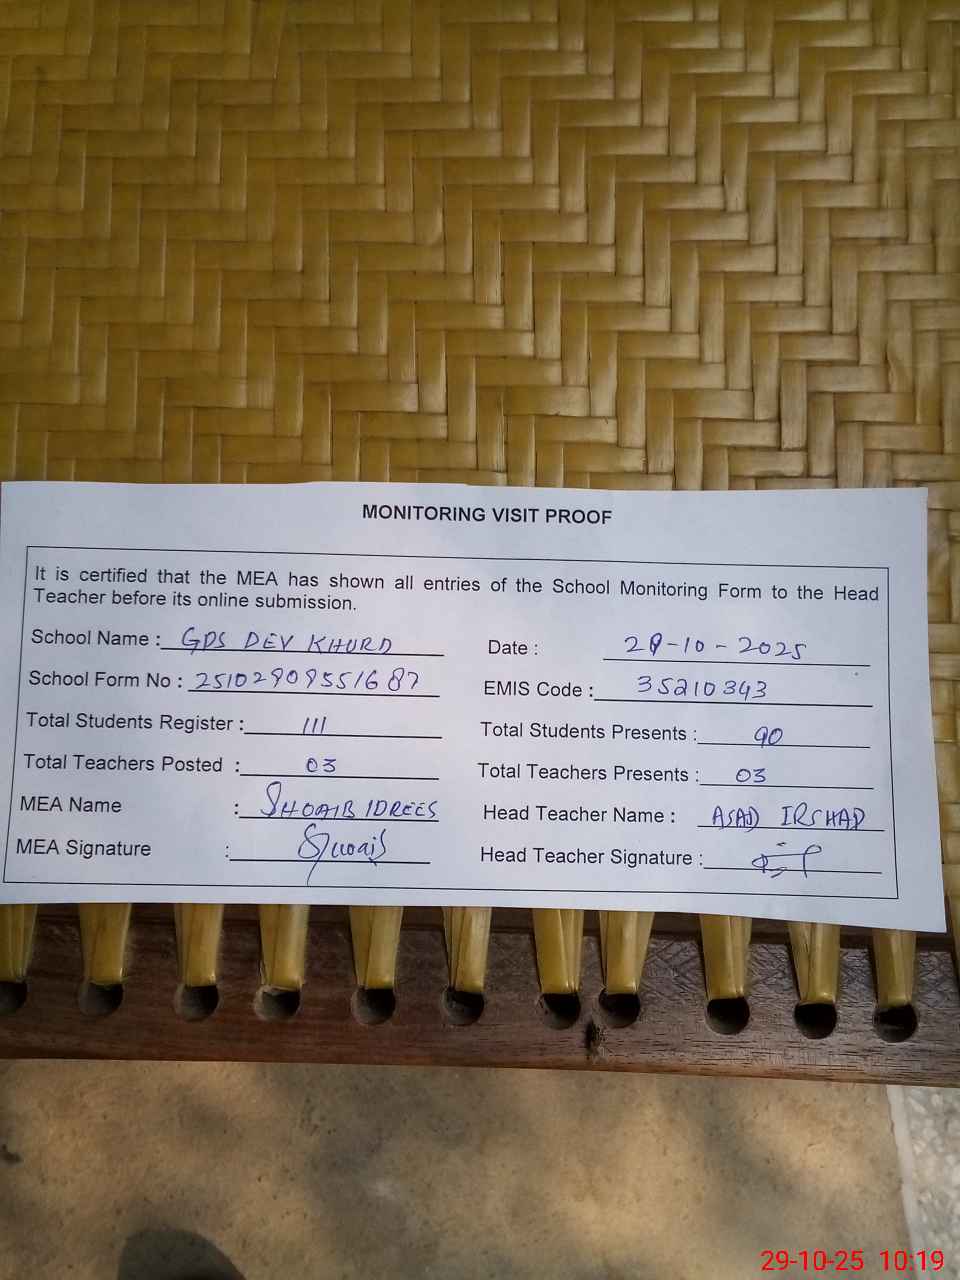 MONITORING VISIT PROOF
It is certified that the MEA has shown all entries of the School Monitoring Form to the Head
Teacher before its online submission.
School Name : GPS DEV KHURD Date : 29-10-2025
School Form No : 25102909551687 EMIS Code : 35210343
Total Students Register : 111 Total Students Presents : 90
Total Teachers Posted : 03 Total Teachers Presents : 03
MEA Name : SHOAIB IDREES Head Teacher Name : ASAD IRSHAD
MEA Signature : Shoaib Head Teacher Signature :
29-10-25 10:19